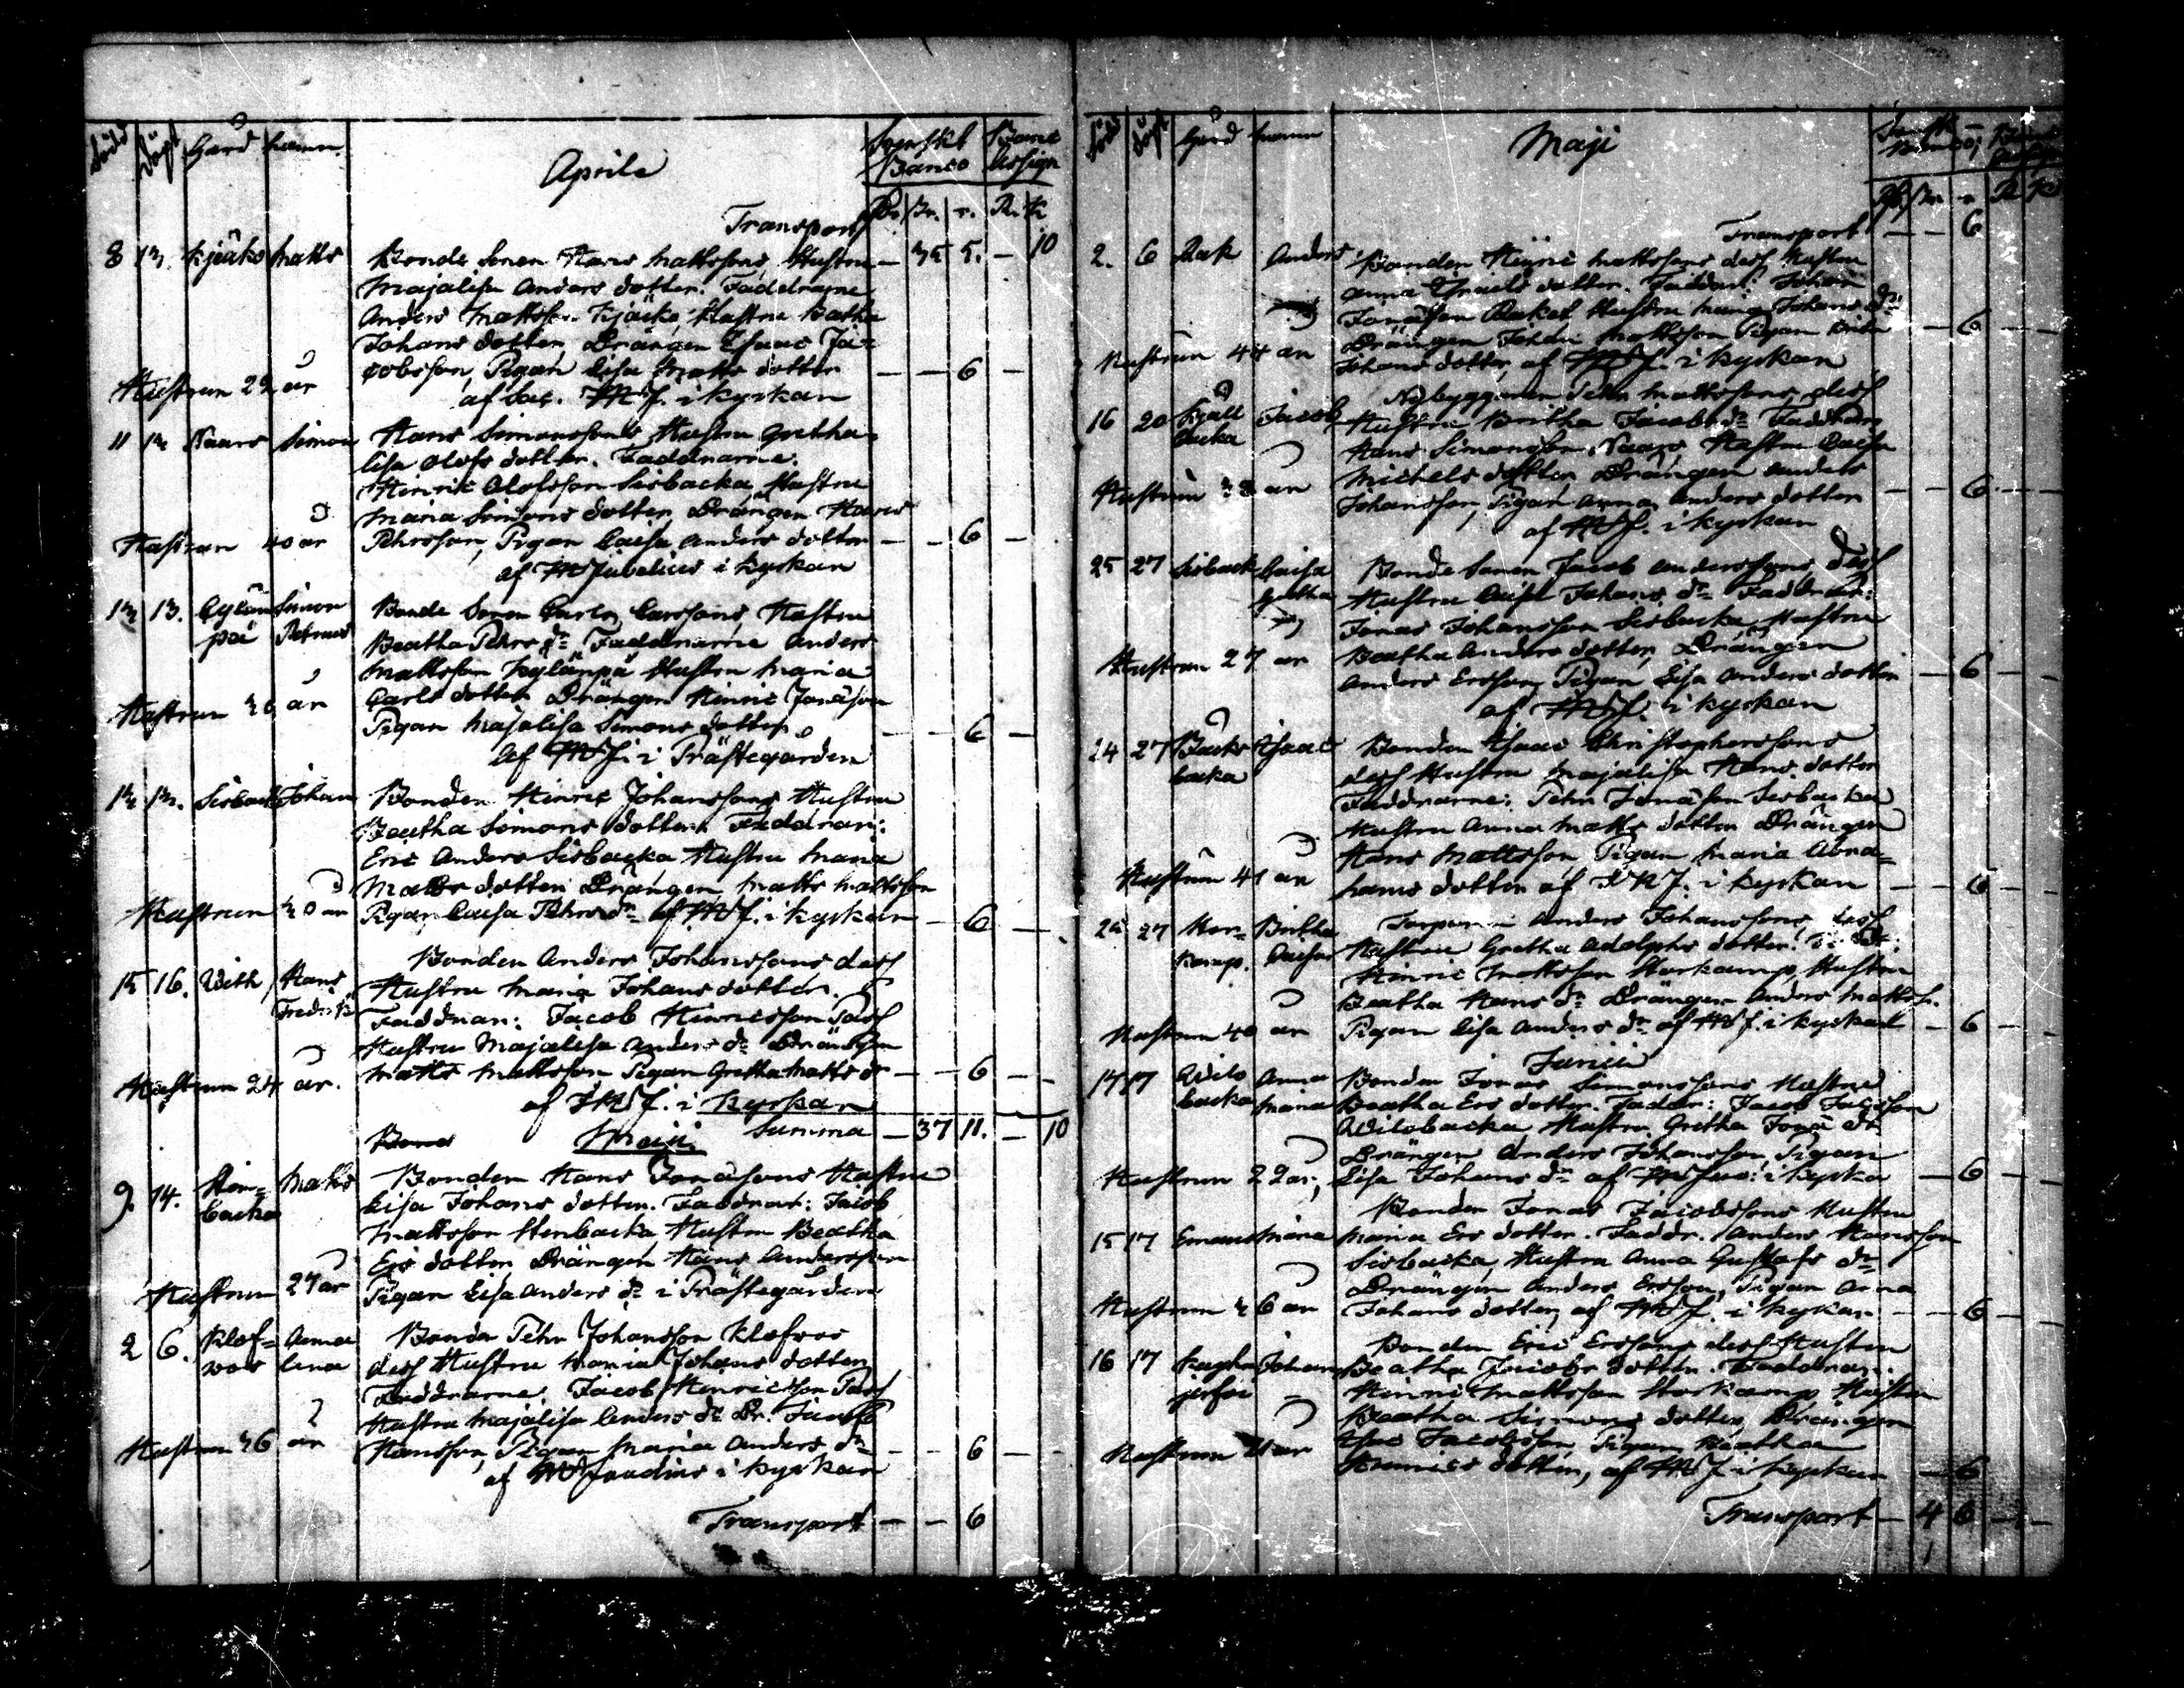 född döpt Gård namn Aprils Svenskt Banco Banc Assign
Transport Rs. Sk. r. R. k
8 12 Kjäko Matts Bonde Sonen Hans Mattssons Hustru — 35 5. — 10
Majalisa Anders dotter. Faddrarne
Anders Mattsson Kjäko, Hustru Beatha
Johans dotter, Drängen Isaac Ja-
cobsson, Pigan Lisa Matts dotter — — 6 —
Hustrun 22 år
af Sac. i kyrkan
11 12 Naars Simon Hans Simonssons Hustru Gretha
Lisa Olofs dotter. Faddrarne.
Hinrik Olofsson Sisbacka Hustru
Maria Simons dotter, Drängen Hans
Hustrun 40 år Pehrsson, Pigan Caisa Anders dotter — — 6 —
af i kyrkan
12 13. Simon Petrus Bonde Sonen Carl Carssons Hustru
Beatha Pehrs dr Faddrarne Anders
Mattsson Kylänpä Hustru Maria
Carls dotter Drängen Hinric Jonasson
Hustrun år
Pigan Majalisa Simons dotter — — 6 —
af i Prästegården
12 12. Sisback Johan Bonden Hinric Johanssons Hustru
Beatha Simons dotter. Faddrar:
Eric Anders Sisbacka Hustru Maria
Matts dotter Drängen Matts Mattsson
Hustrun 20 år Pigan Caisa Pehrs dr af i kyrkan — 6 —
Bonden Anders Johanssons dess
15 16. With Hans Fredrik Hustru Maria Johans dotter.
Faddrar: Jacob Hinricsson Pass
Hustru Majalisa Anders dr Drängen
Hustrun 24 år. Matts Mattsson Pigan Gretha Matts dr — — 6 —
af i kyrkan
Summa — 37 11. — 10
Maji.
9. 14. Sten-backa Matts Bonden Hans Jonassons Hustru
Lisa Johans dotter. Faddrar: Jacob
Mattsson Stenbacka, Hustru Beatha
Ers dotter Drängen Hans Andersson
Hustrun 27 år Pigan Lisa Anders dr i Prästegården
2 6. Klof-vos Anna Lena Bonden Pehr Johansson Klofvos
dess Hustru Maria Johans dotter
Faddrarne. Jacob Hinricsson Pass
Hustru Majalisa Anders dr Dr.
Hustrun 26 år Hansson, Pigan Maria Anders dr — — 6 —
af i kyrkan
Transport — — 6
född döpt Gård namn Maji
Transport — — 6
2. 6 Rak Anders Bonden Hinric Mattssons dess Hustru
Anna Israels dotter. Faddrar: Johan
Jonasson Raket Hustru Maria Johans dr
Drängen Johan Mattsson Pigan — 6 —
Hustrun 44 år Johans dotter, af i kyrkan
Nybyggaren Pehr Mattssons dess
16 20 Kjall backa Jacob Hustru Britha Jacobs dr Faddrar
Hans Simonsson Naars, Hustru Caisa
Michels dotter, Drängen Anders
Hustrun 38 år Johansson, Pigan Anna Anders dotter — — 6 —
af i kyrkan
25 27 Sisback Caisa Gretha Bonde Sonen Jacob Anderssons dess
Hustru Caisa Johans dr Faddrar:
Jonas Johansson Sisbacka, Hustru
Hustrun 27 år Beatha Anders dotter, Drängen
Anders Ersson, Pigan Lisa Anders dotter — 6 —
af i kyrkan
24 27 Backs backa Isaac Bonden Isaac Christopherssons
dess Hustru Majalisa Hans dotter
Faddrarne: Pehr Jonasson Sisbacka
Hustru Anna Matts dotter Drängen
Hans Mattsson, Pigan Maria Abra-
Hustrun 41 år hams dotter af i kyrkan — — 6 —
25 27 Stor-kamp. Britha Caisa Anders Johanssons, dess
Hustru Gretha Adolphs dotter.
Hinric Mattsson Storkamp, Hustru
Beatha Hans dr Drängen Anders Mattss.
Hustrun 40 år Pigan Lisa Anders dr af i kyrkan — 6 —
Junii
14 17 Wilobacka Anna Maria Bonden Jonas Simonssons Hustru
Beatha Ers dotter. Faddr: Jacob
Wilobacka Hustru Gretha Jona dr
Drängen Anders Johansson, Pigan
Hustrun 22 år, Lisa Johans dr af i kyrka — 6 —
Bonden Jonas Jacobssons Hustru
15 17 Emaus Maria Maria Ers dotter. Faddr. Anders Hansson
Sisbacka, Hustru Anna Gustafs dr
Drängen Anders Ersson, Pigan Anna
Hustrun 26 år Johans dotter, af i kyrkan — — 6 —
Bonden Eric Erssons dess Hustru
16 17 Johan Beatha Jacobs dotter. Faddrar.
Hinric Mattsson Storkamp Hustru
Beatha Simons dotter, Drängen
Jacobsson Pigan Beatha
Hustrun år Hinrics dotter, af i kyrkan — 6
Transport — 4 6 — —